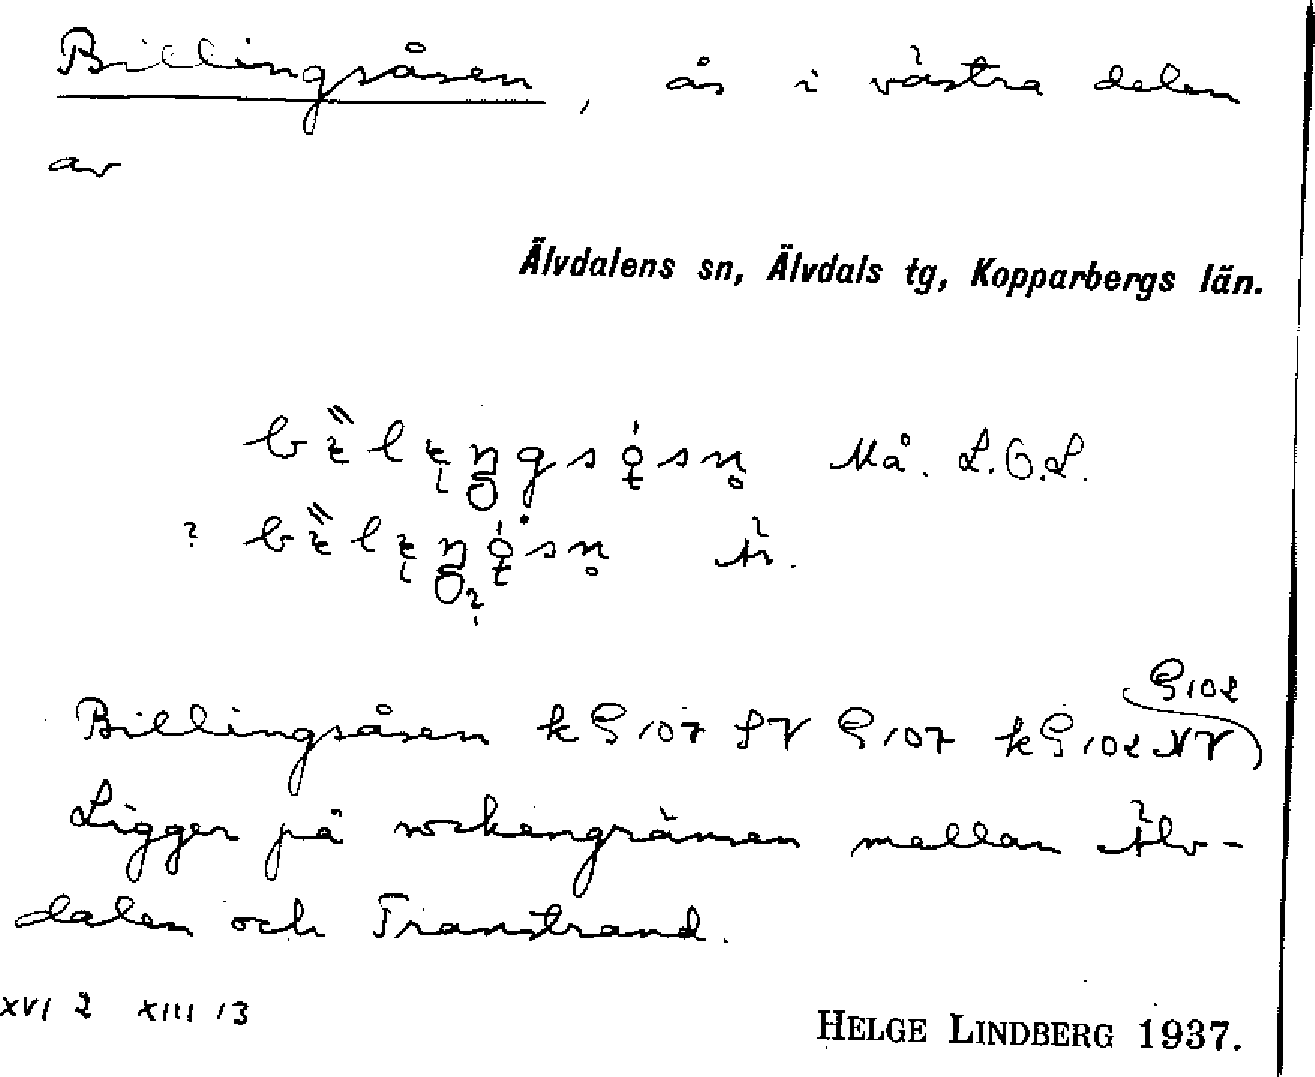 Billingsåsen, ås i västra delen
av
Älvdalens sn, Älvdals tg, Kopparbergs län.
Må. L.O.L.
?
Billingsåsen k G 107 SV G 107 k G 102 NV
G 102
Ligger på sockengränsen mellan Älv-
dalen och Transtrand.
XVI 2 XIII 13
HELGE LINDBERG 1937.